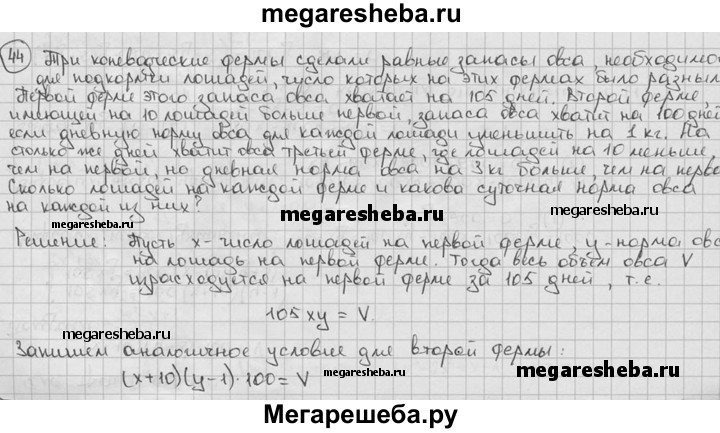 megaresheba.ru
44 Три коневодческие фермы сделали равные запасы овса, необходимо
для подкормки лошадей, число которых на этих фермах было разным
Первой ферме этого запаса овса хватает на 105 дней. Второй ферме,
имеющей на 10 лошадей больше первой, запаса овса хватит на 100 дней
если дневную норму овса для каждой лошади уменьшить на 1 кг. На
столько же дней хватит овса третьей ферме, где лошадей на 10 меньше,
чем на первой, но дневная норма овса на 3 кг больше, чем на перво
Сколько лошадей на каждой ферме и какова суточная норма овса
на каждой из них?
megaresheba.ru
megaresheba.ru
megaresheba.ru
Решение: Пусть x - число лошадей на первой ферме, y - норма овс
на лошадь на первой ферме. Тогда весь объём овса V
израсходуется на первой ферме за 105 дней, т.е.
105xy = V
megaresheba.ru
megaresheba.ru
Запишем аналогичное условие для второй фермы:
(x+10)(y-1)·100 = V
megaresheba.ru
megaresheba.ru
Мегарешеба.ру